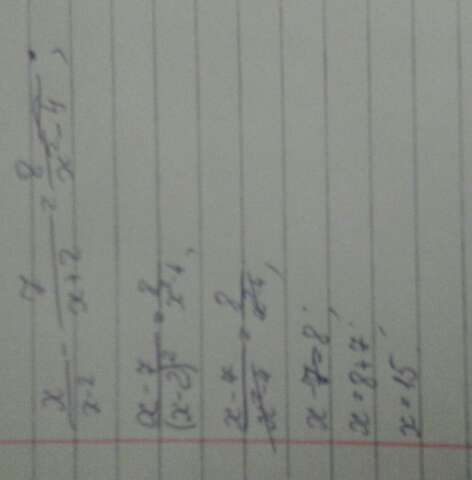 x/(x-2) - 7/(x+2) = 8/(x²-4);
(x-7)/(x-2)² = 8/(x²-4);
(x-7)/(x²-4) = 8/(x²-4);
x-7=8;
x=8+7;
x=15